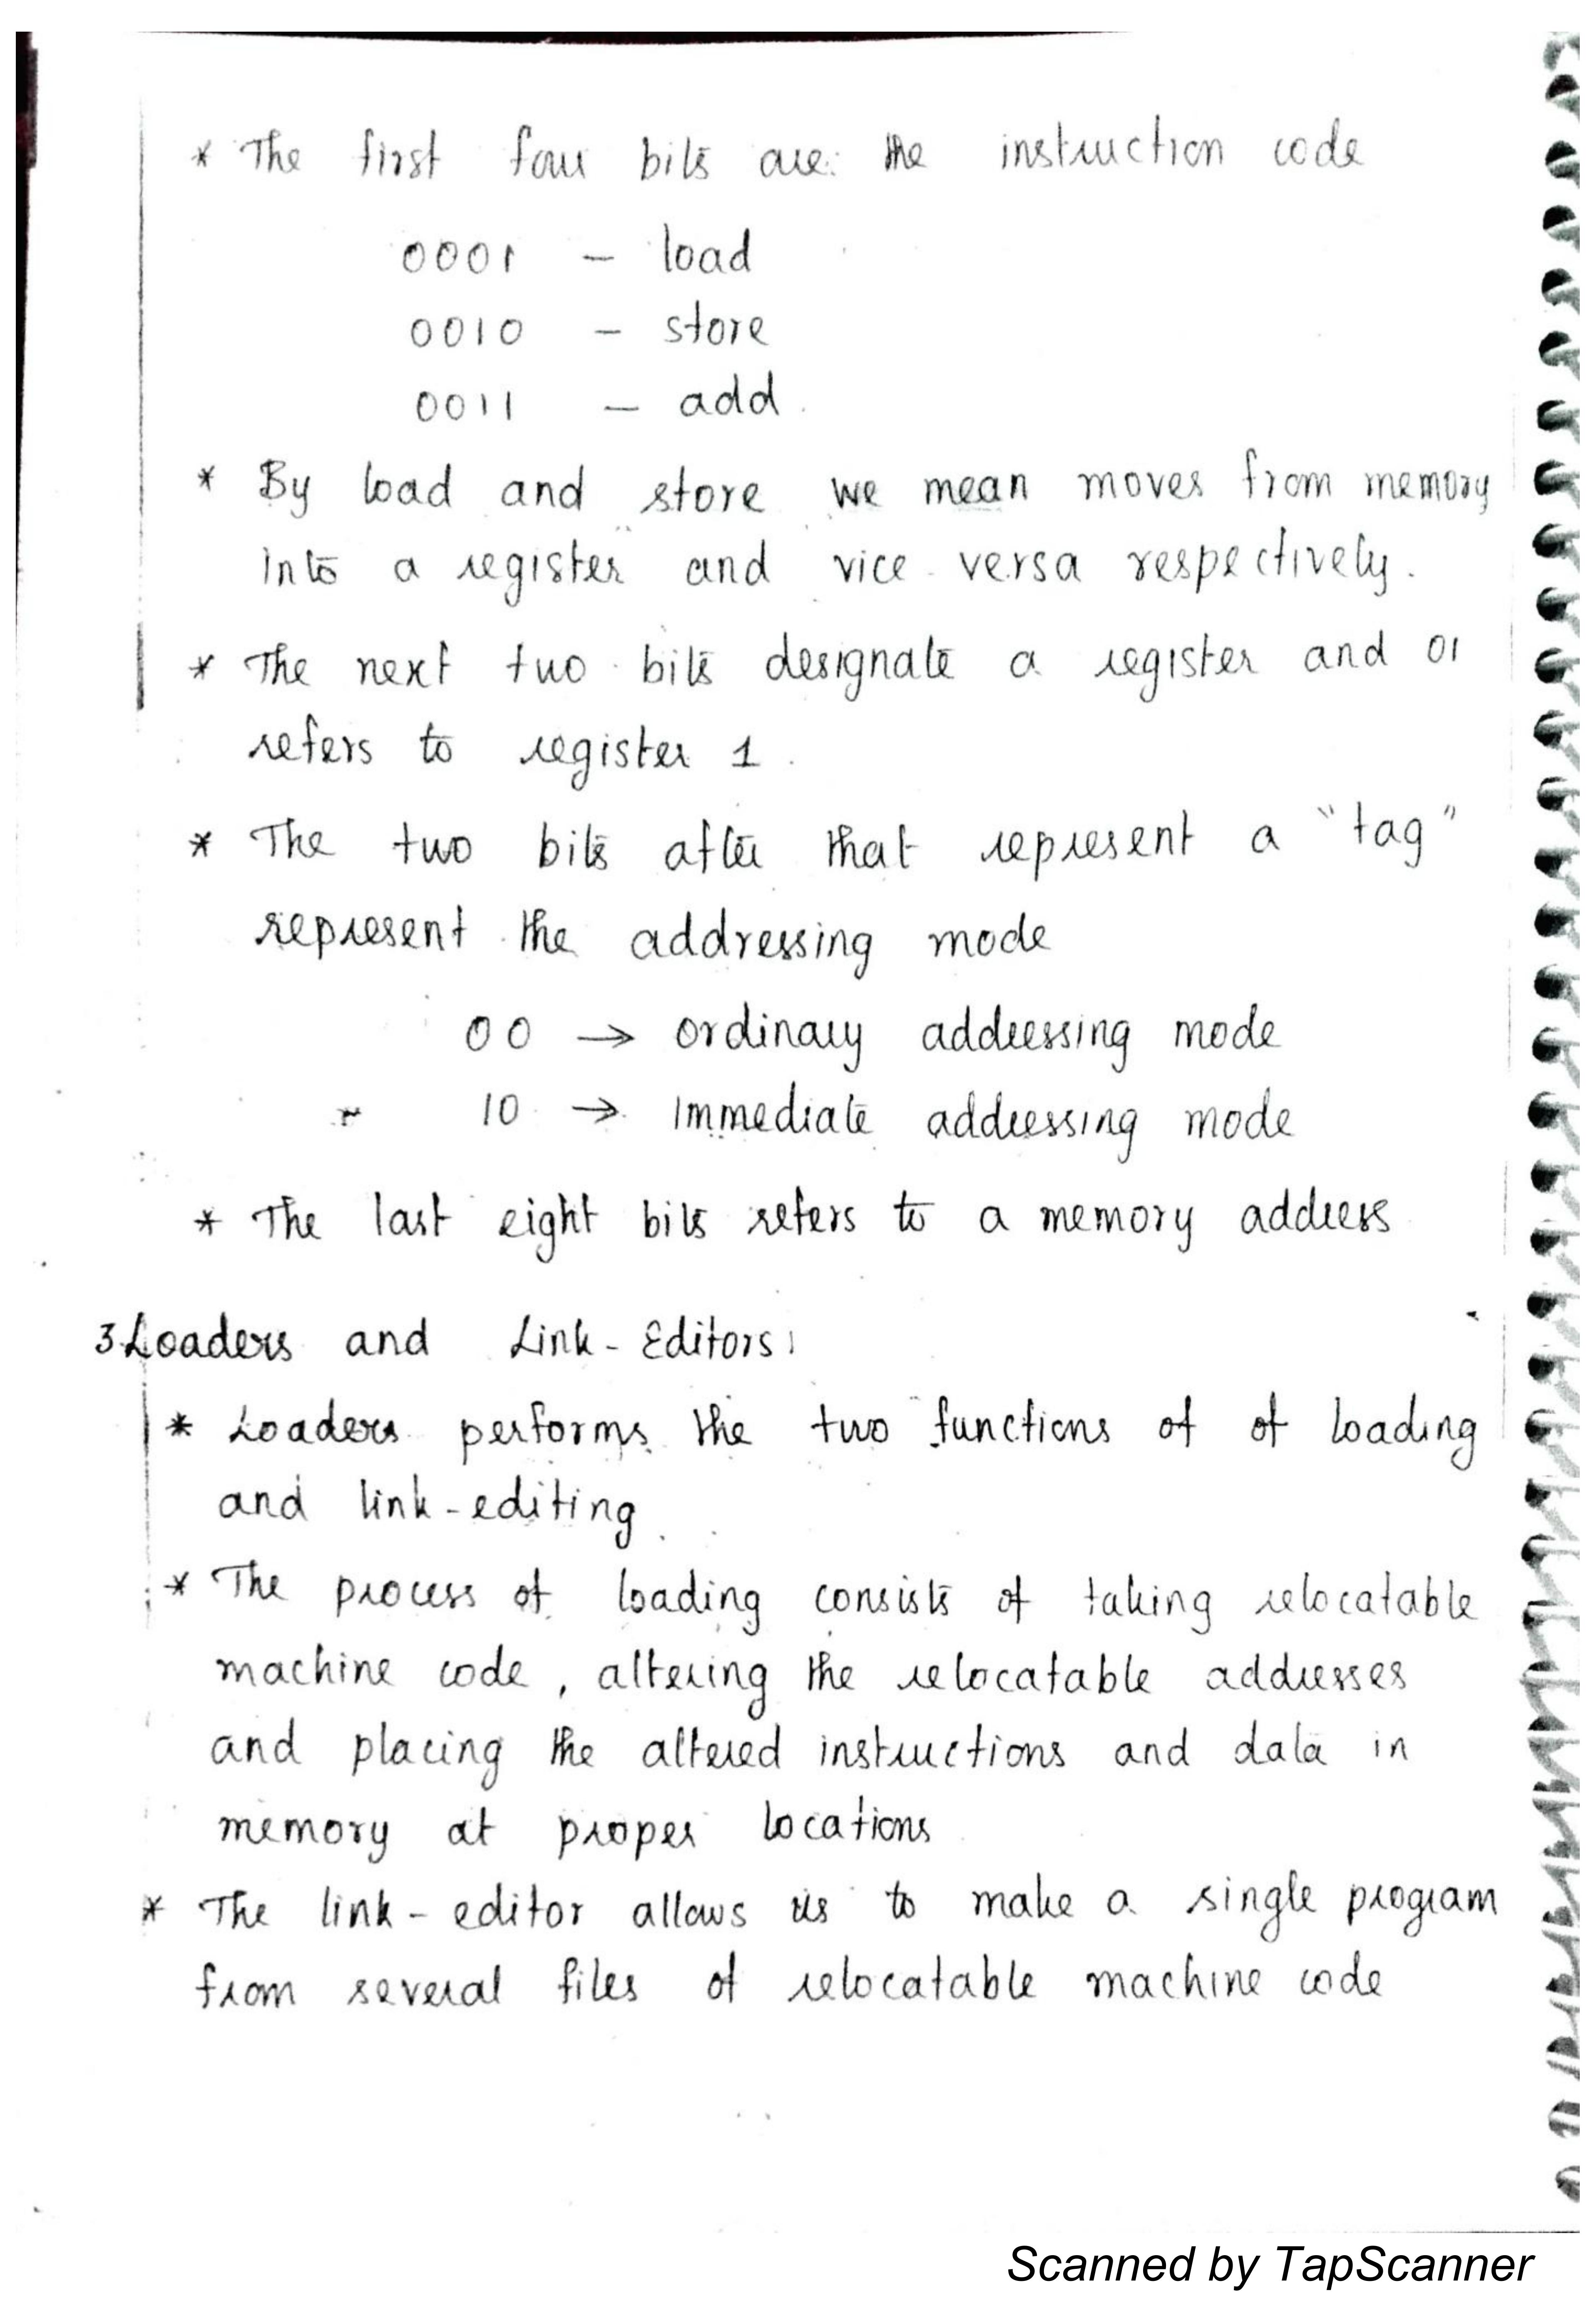 * The first four bits are: the instruction code
0001 - load
0010 - store
0011 - add.
* By load and store we mean moves from memory
into a register and vice versa respectively.
* The next two bits designate a register and 01
refers to register 1.
* The two bits after that represent a "tag"
represent the addressing mode
00 → ordinary addressing mode
10 → Immediate addressing mode
* The last eight bits refers to a memory address
3. Loaders and Link-Editors:
* Loaders performs the two functions of of loading
and link-editing.
* The process of loading consists of taking relocatable
machine code, altering the relocatable addresses
and placing the altered instructions and data in
memory at proper locations
* The link-editor allows us to make a single program
from several files of relocatable machine code
Scanned by TapScanner